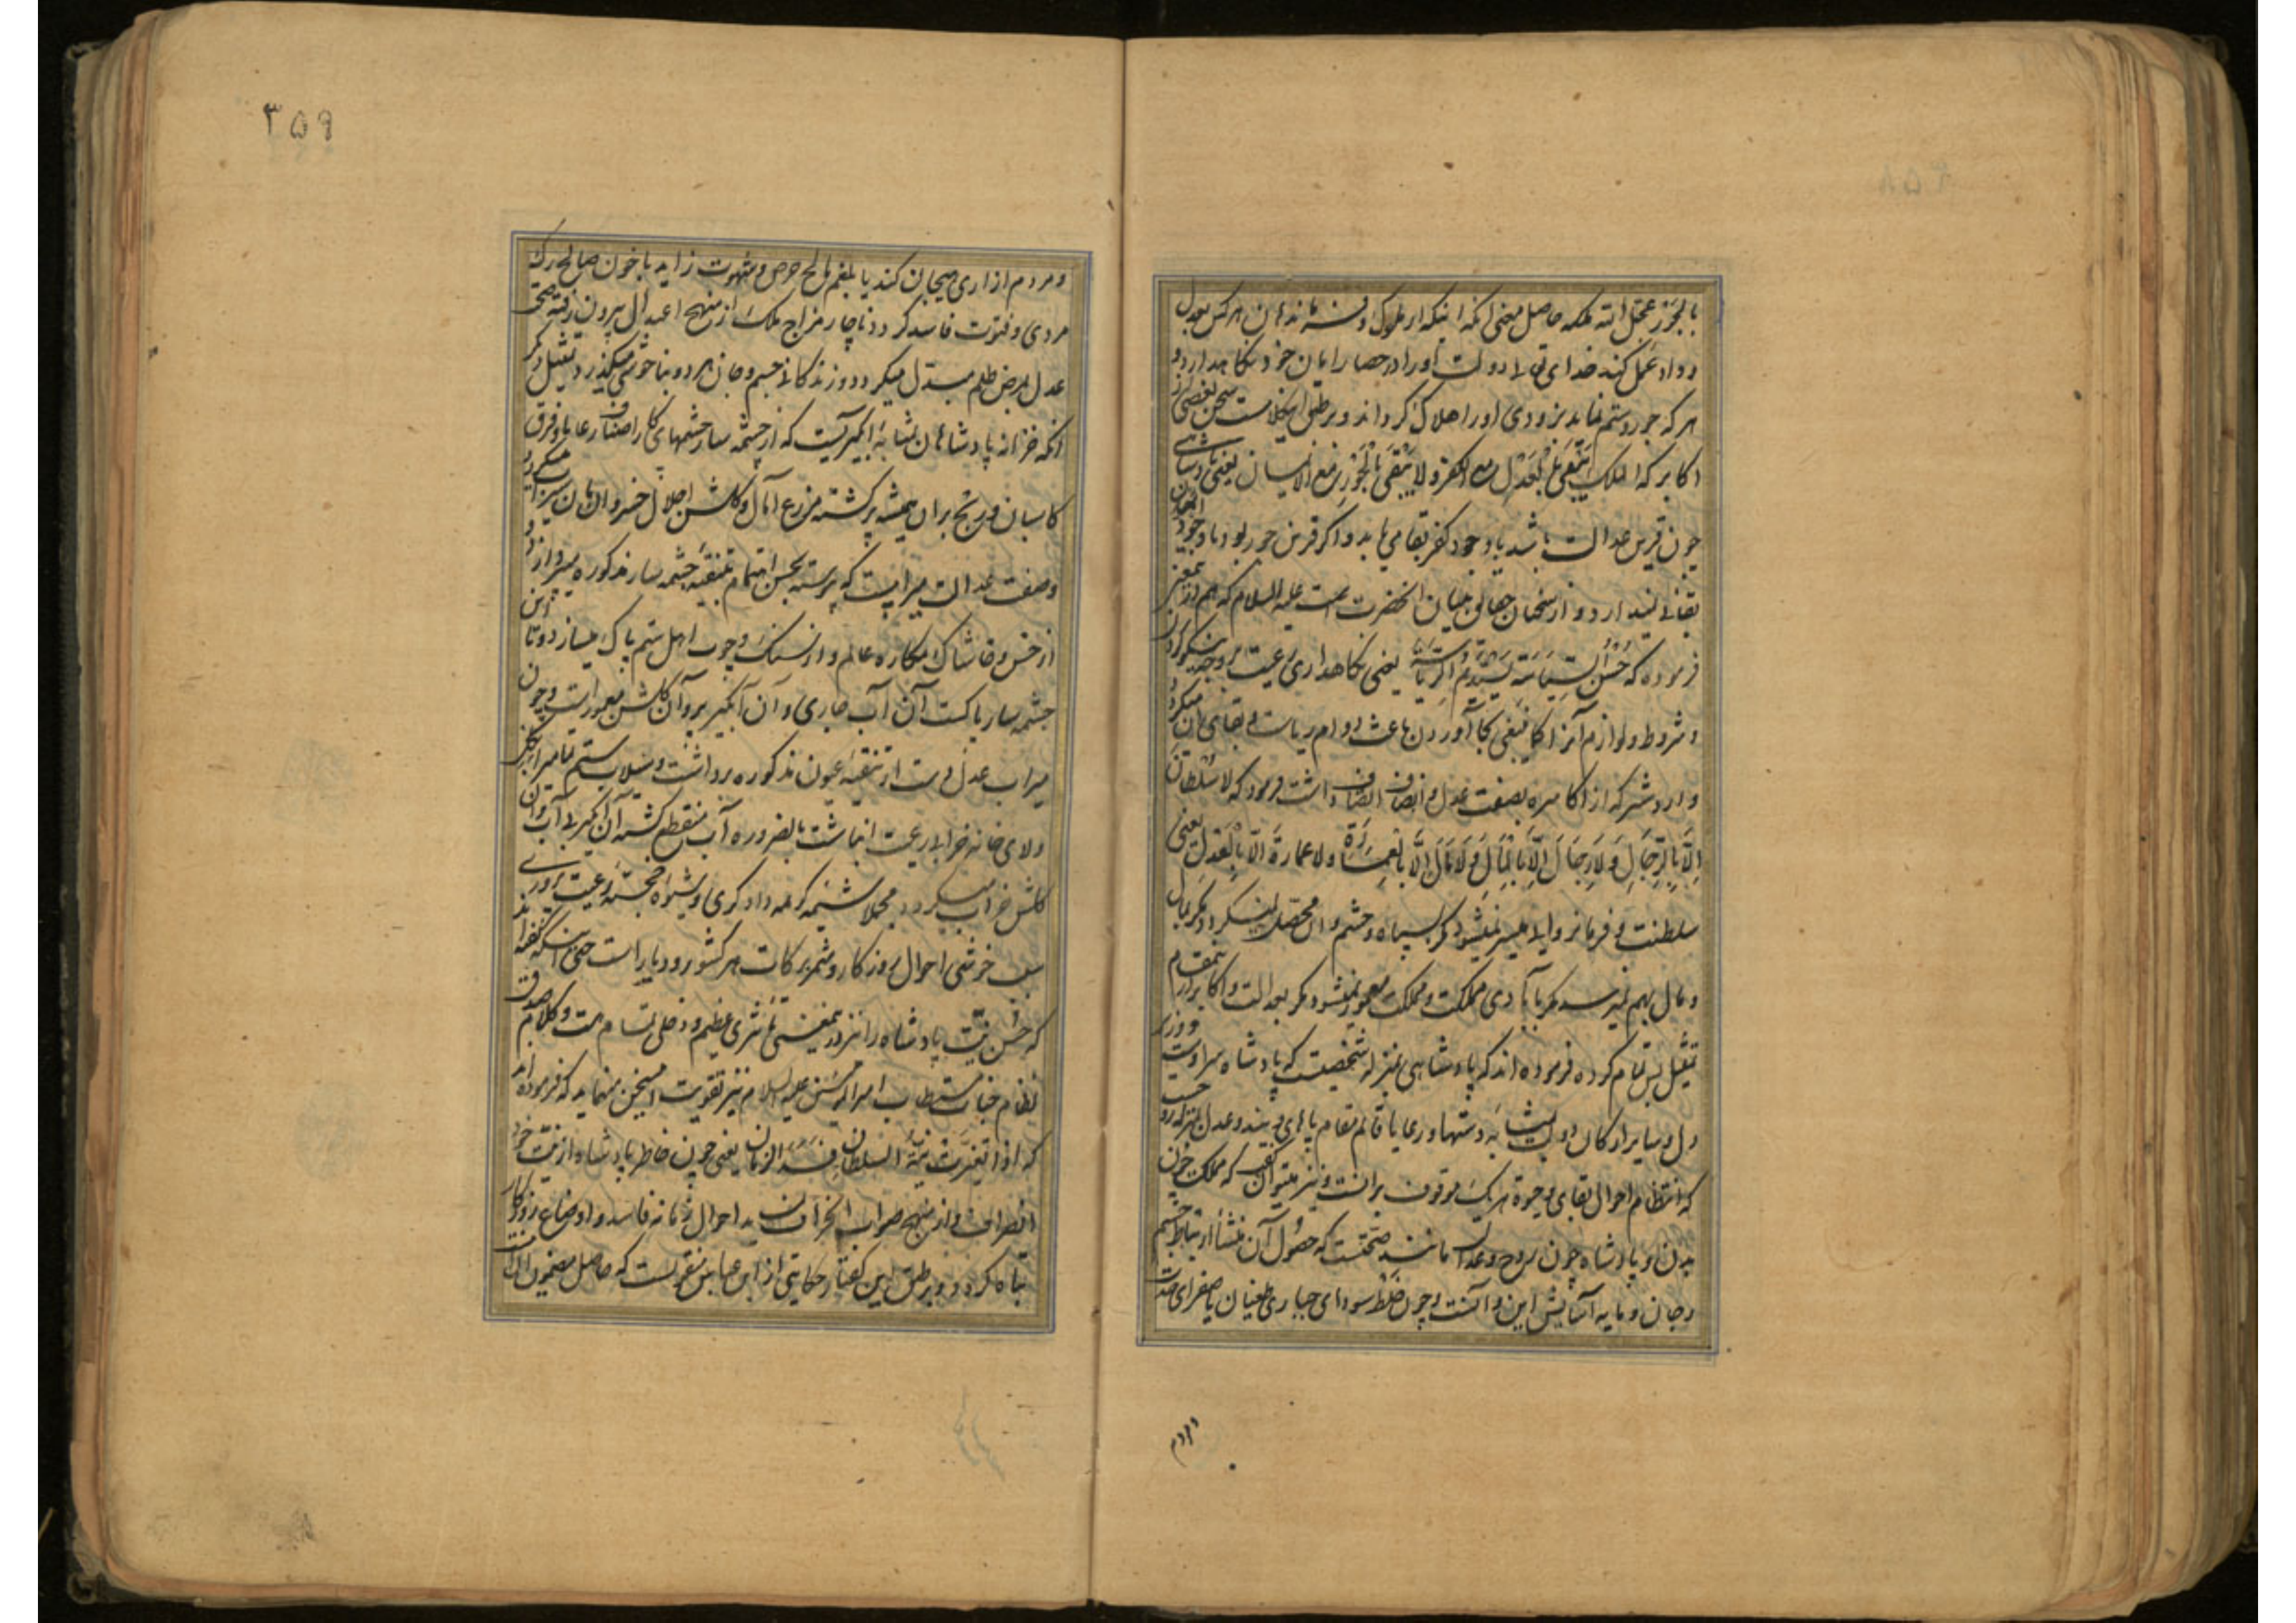 بالجور عجل الله هلکه حاصل معنی آنکه اینکه از ملوک و فرماندهان هر کس بعدل
و داد عمل کند خدای تعالی دولت او را در حصار امان خود نگاهدارد و
هر که جور و ستم نماید بزودی او را هلاک گرداند و بر طبق اینکلامست سخن بعضی از
اکابر که الملک یبقی بالعدل مع الکفر و لا یبقی بالجور مع الایمان یعنی پادشاهی
چون قرین عدالت باشد با وجود کفر بقا می یابد و اگر قرین جور بود با وجود ایمان
بقائی ندارد و از سخنان آنحضرت است علیه السلام که هم در
فرموده که حُسْنُ السِّیاسَةِ یَسْتَدیمُ الرِّیاسَةَ یعنی نگاهداری رعیت بر وجه نیکو کردن
و شروط و لوازم آنرا کما ینبغی بجا آوردن باعث دوام ریاست و بقای آن میگردد
و اردشیر که از اکاسره بصفت عدل و انصاف اتصاف داشت فرمود که لا سُلْطانَ
اِلّا بِالرِّجالِ وَ لا رِجالَ اِلّا بِالْمالِ وَ لا مالَ اِلّا بِالْعِمارَةِ وَ لا عمارةَ اِلّا بِالْعَدْلِ یعنی
سلطنت و فرمانروایی میسر نمیشود مگر بسپاه و حشم و آن محصل نمیگردد مگر بمال
و مال بهم نمیرسد مگر بآبادی مملکت و مملکت معمور نمیشود مگر بعدالت و اکابر
تمثیل بس تمام کرده فرموده اند که پادشاهی بمنزله شخصیست که پادشاه سر اوست و وزیر
دل و سایر ارکان دولت بمثابه دستها و رعایا قائم مقام پاهای ویند و عدل بمنزله روح
که انتظام احوال بقای وجود هر یک موقوف بر آنست و نیز میتوان گفت که مملکت چون
بدن و پادشاه چون روح و عدالت مانند صحتست که حصول آن منشأ ارتباط جسم
و جان و مایه آسایش این و آنست و چون خلط سودای جباری طغیان یا صفرای حدت
و مردم
۳۵۹
و مردم آزاری هیجان کند یا بلغم مالح حرص و شهوت زاید یا خون صالح رک
مردی و فتوت فاسد گردد ناچار مزاج ملک از منهج اعتدال بیرون رفته صحت
عدل بمرض ظلم مبدل میگردد و زندگانی جسم و جان هر دو بناخوشی میگذرد تمثیل دیگر
آنکه خزانه پادشاهان بمثابه آبگیریست که از چشمه سار چشمهای کار اصناف رعایا و فرق
کاسبان و رنج بران همیشه پر گشته مزرع آمال و گلشن اجلال خسروان از آن سبز میگردد
و صفت عدالت میرابیست که پیوسته بحسن اهتمام بتنقیه چشمه سار مذکوره میپردازد و
از خس و خاشاک مکاره عالم و از سنگ و چوب اهل ستم پاک میسازد و تا این
چشمه سار پاکست آن آب جاری و آن آبگیر پر و آن گلشن معمور است و چون
میراب عدل دست از تنقیه عیون مذکوره برداشت و سیلاب ستم
و لای خانه خرابی رعیت انباشت بالضروره آب منقطع گشته آن آبگیر بی آب و آن
گلشن خراب میگردد مجملا شیمه کریمه دادگری و شیوه خجسته رعیت پروری
سبب خوشی احوال روزگار و مثمر برکات هر کشور و دیار است حتی اینکه گفته اند
که حسن نیت پادشاه را نیز در تاثیری عظیم و دخلی تمام هست و کلام صدق
نظام جناب مستطاب امیر المؤمنین علیه السلام نیز تقویت این سخن مینماید که فرموده اند
که اذا تغیرت نیة السلطان فسد الزمان یعنی چون خاطر پادشاه از نیت خود
انصراف و از منهج صواب انحراف نماید احوال زمانه فاسد و اوضاع روزگار
تباه گردد و بر طبق این گفتار حکایتی از ابن عباس منقولست که حاصل مضمون آن